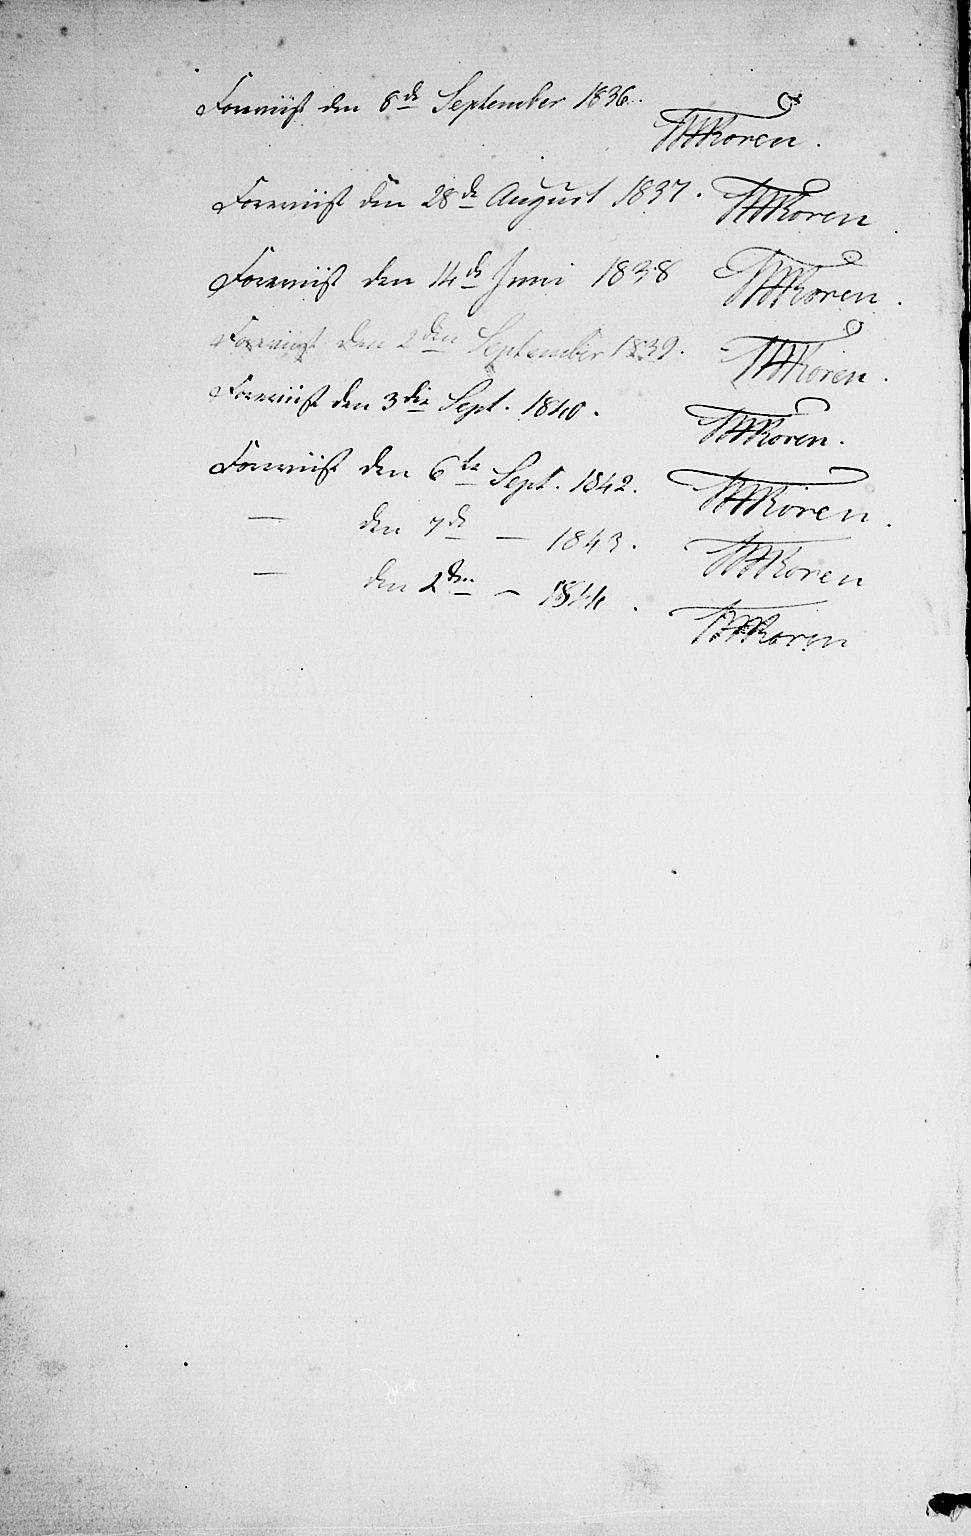 Foreviist den 8de September 1836. WFKoren.
Foreviist den 28de August 1837. WFKoren.
Foreviist den 14de Juni 1838 WFKoren.
Foreviist den 2den September 1839. WFKoren.
Foreviist den 3die Sept. 1840. WFKoren.
Foreviist den 6te Sept. 1842. WFKoren.
— den 7de — 1843. WFKoren
— den 2den — 1844. WFKoren